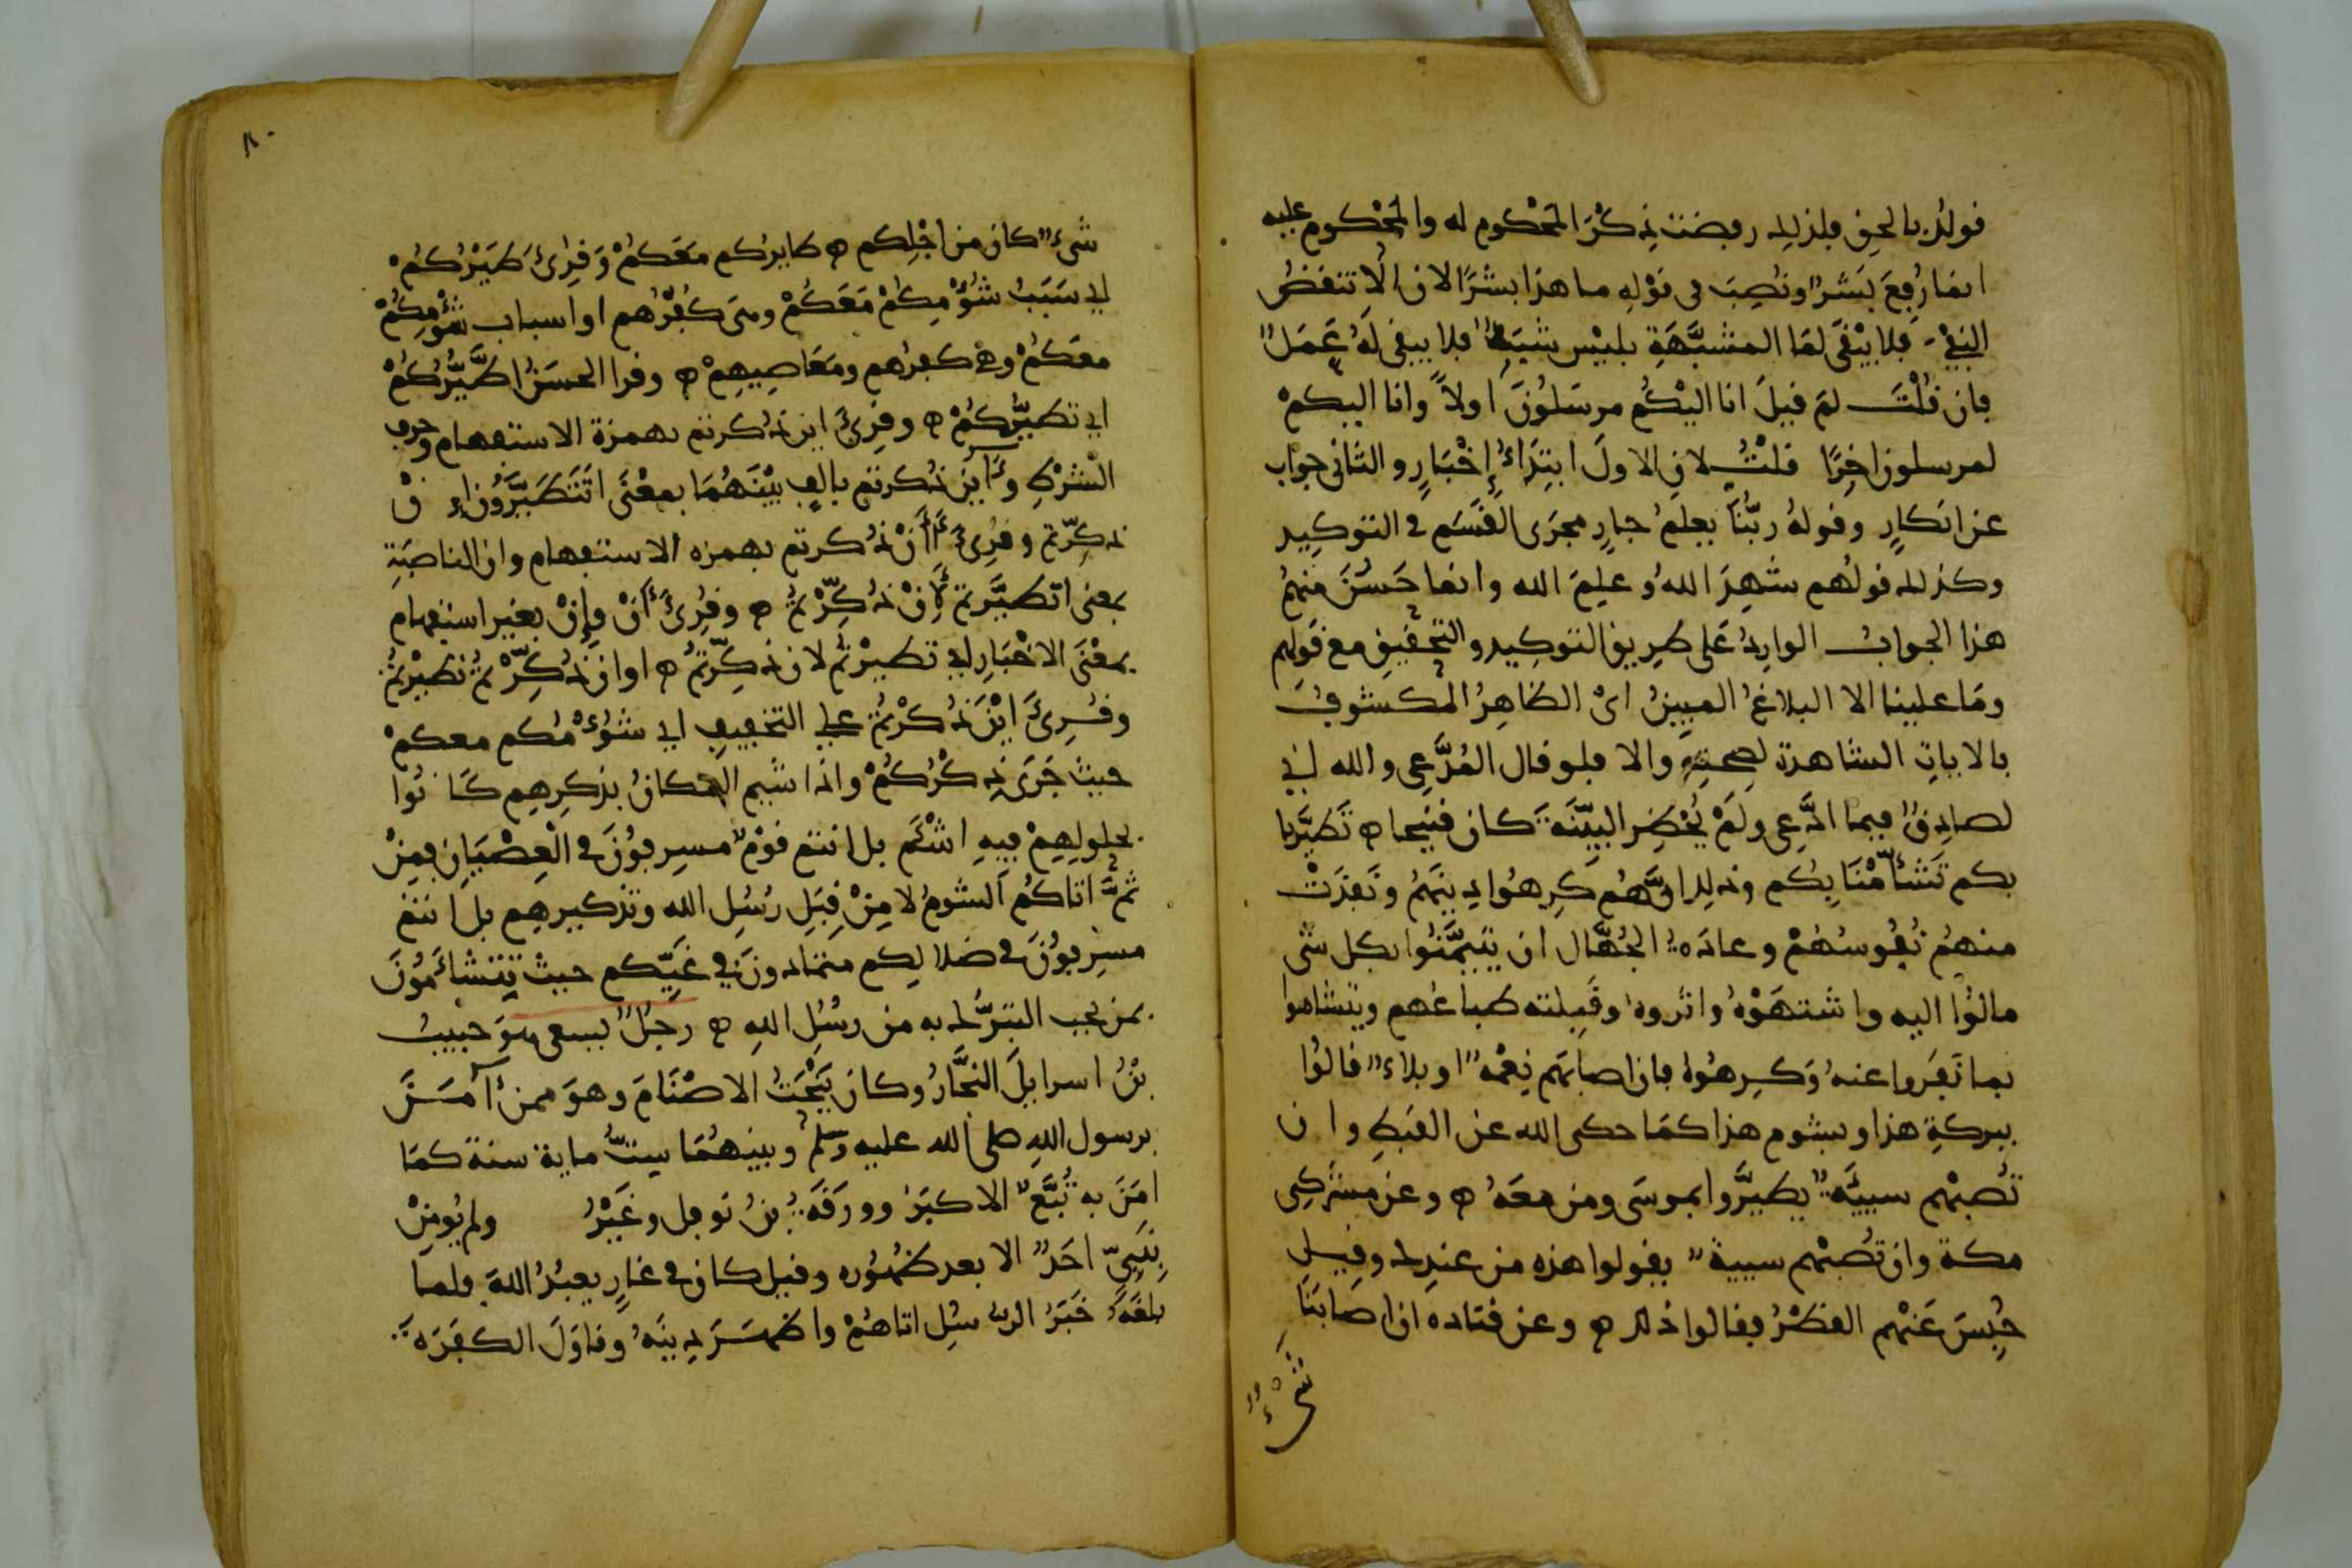 قولك بالحق فلذلك رفضت ذكر المحكوم له والمحكوم عليه
انما رُفِعَ بَشَرٌ ونُصِبَ في قَوْلِهِ ما هذا بشرًا لان الّا تنقضُ
النفيَ فلا يَبْقَى لمَا المشبَّهَةِ بليْس شَبَهٌ فلا يبقى لَهُ عَمَلٌ
فان قُلْتَ لمَ قيلَ انا اليْكُم مرسَلُونَ اولاً وانا اليكمْ
لمرسلون اخِرًا قلتُ لان الاولَ ابتِدَاءُ إِخْبَارٍ والثانى جواب
عن انكَارٍ وقولهُ ربُّنَا يعلمُ جارٍ مجرَى القَسَمِ في التوكِيد
وكذلك قولُهم شَهِدَ اللهُ وعلِمَ الله وانما حَسُنَ منهمُ
هذا الجوابُ الوارِدُ عَلى طرِيق التوكِيد والتحقيقِ مع قَولِهِم
ومَا علينا الا البلاغُ المبِينُ اىْ الظاهِرُ المكشُوفُ
بالاياتِ الشاهدة لصحتِهِ والا فلو قال المُدَّعِى والله اني
لصادِقٌ فيما ادَّعِى ولَمْ يُحْضِرِ البيّنَةَ كان قبيحا ه تَطَيَّرنا
بكم تَشَأّمْنَا بِكُم وذلك انَّهُم كَرِهُوا دِينَهُمُ ونَفَرَتْ
منهُم نُفُوسُهُمْ وعادَةُ الجُهَّال ان يَتَيمَّنُوا بكل شىء
مالُوْا اليه واشتهَوْهُ واثروهُ وقَبِلته طباعُهم ويتشاءموا
بما نَفَروا عنهُ وَكرِهُوهُ فان اصابَهم نِعْمَةٌ او بلاءٌ قالوُا
ببركةِ هذا وبشوم هذا كمَا حكى الله عن القبطِ وان
تُصبْهم سيِّئَةٌ يطيرُّوا بموسَى ومن معَهُ ه وعن مشركِى
مكة وان تُصبْهم سيية يقولوا هذه من عندِك وقيل
حُبِسَ عَنْهم القطْرُ فقالوا ذلك ه وعن قتاده ان اصَابَنَا
شَىْءٌ
٨٠
شىءٌ كان من اجْلِكم ه طايركم معَكمْ وَقرِئَ طَيْرُكُمْ
اي سَبَبُ شُؤْمِكمْ مَعَكُمْ ومى كفرُهم او اسباب شؤمِكُمْ
معكمْ وهى كفرُهم ومَعَاصِيهِمْ ه وقرا الحسَنُ اطَّيُّرُكُمْ
اي تطيُّرُكمْ ه وقرِئَ اين ذكرتم بهمزة الاستفهام وحرف
الشرْطِ وَءَاين ذكرتم بالِفٍ بيْنَهُمَا بمعْنَى اتَتَطَيَّرُونَ إن
ذكِّرتم وقُرِئَ أَأَنْ ذكرتم بهمزه الاستفهام وان الناصبَةِ
بمعنى اتطيَّرتمْ لِأَنْ ذكِّرْتمُ ه وقُرِئَ أَنْ وإِنْ بغير استفهام
بمعْنَى الاخْبَارِ اي تطيرْتمْ لان ذكِّرتمُ ه او ان ذكِّرْتمُ تطيرْتمُ
وقُرِئَ ايْنَ ذكرْتمُ على التخفيفِ اي شؤْمُكم معكمْ
حيث جَرَى ذِكْرُكُمْ واذا شيم المكانُ بذكرِهِم كَانُوا
بحلولِهِمْ فيهِ اشْئَم بل انتم قوْمٌ مسرِفُونَ في الْعِصْيَانِ فمِنْ
ثمَّ اتاكمُ الشومُ لا مِنْ قِبَلِ رُسُلِ الله وتذكيرهِم بل انتم
مسرِفُونَ في ضلالِكم متمادونَ في غَيِّكم حيثْ تتَشاءَمُونَ
بمن يجب التبرُّك به من رسُلِ اللهِ ه رجلٌ يسعى هوَ حَبيبُ
بْنُ اسرايلَ النجَّارُ وكانَ يَنْحَتُ الاصْنَامَ وهوَ ممن آمَنَ
برسول اللهِ صلى الله عليه وسلم وبينهُمَا ستُّ ماية سنةَ كمَا
امَنَ به تُبَّعٌ الاكبَرُ وورَقَةُ بنُ نَوفل وغَيْرُ ولم يُومِنْ
بِنَبِيّ احَدٌ الا بعد ظهُوره وقيل كان في غارٍ يعبُدُ اللهَ فلما
بلغَهُ خَبَرُ الرسُلِ اتاهُمْ واظهَرَ دِينَهُ وقاوَلَ الكفَرَةَ